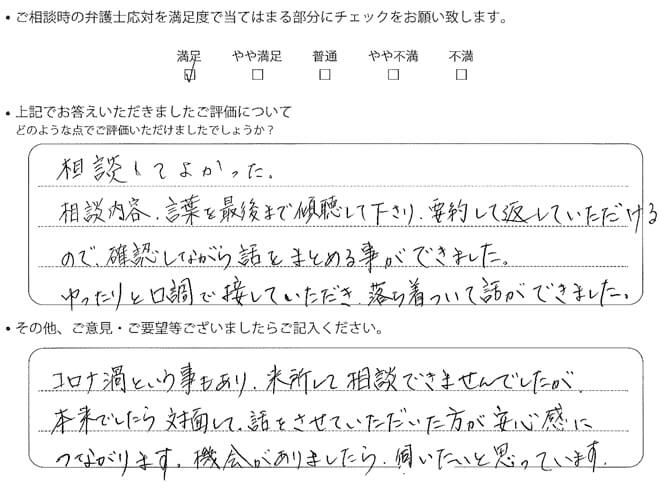 ・ご相談時の弁護士応対を満足度で当てはまる部分にチェックをお願い致します。
満足 やや満足 普通 やや不満 不満
・上記でお答えいただきましたご評価について
どのような点でご評価いただけましたでしょうか？
相談してよかった。
相談内容、言葉を最後まで傾聴して下さり、要約して返していただける
ので、確認しながら話をまとめる事ができました。
ゆったりと口調で接していただき、落ち着ついて話ができました。
・その他、ご意見・ご要望等ございましたらご記入ください。
コロナ渦という事もあり、来所して相談できませんでしたが、
本来でしたら対面して、話をさせていただいた方が安心感に
つながります。機会がありましたら、伺いたいと思っています。